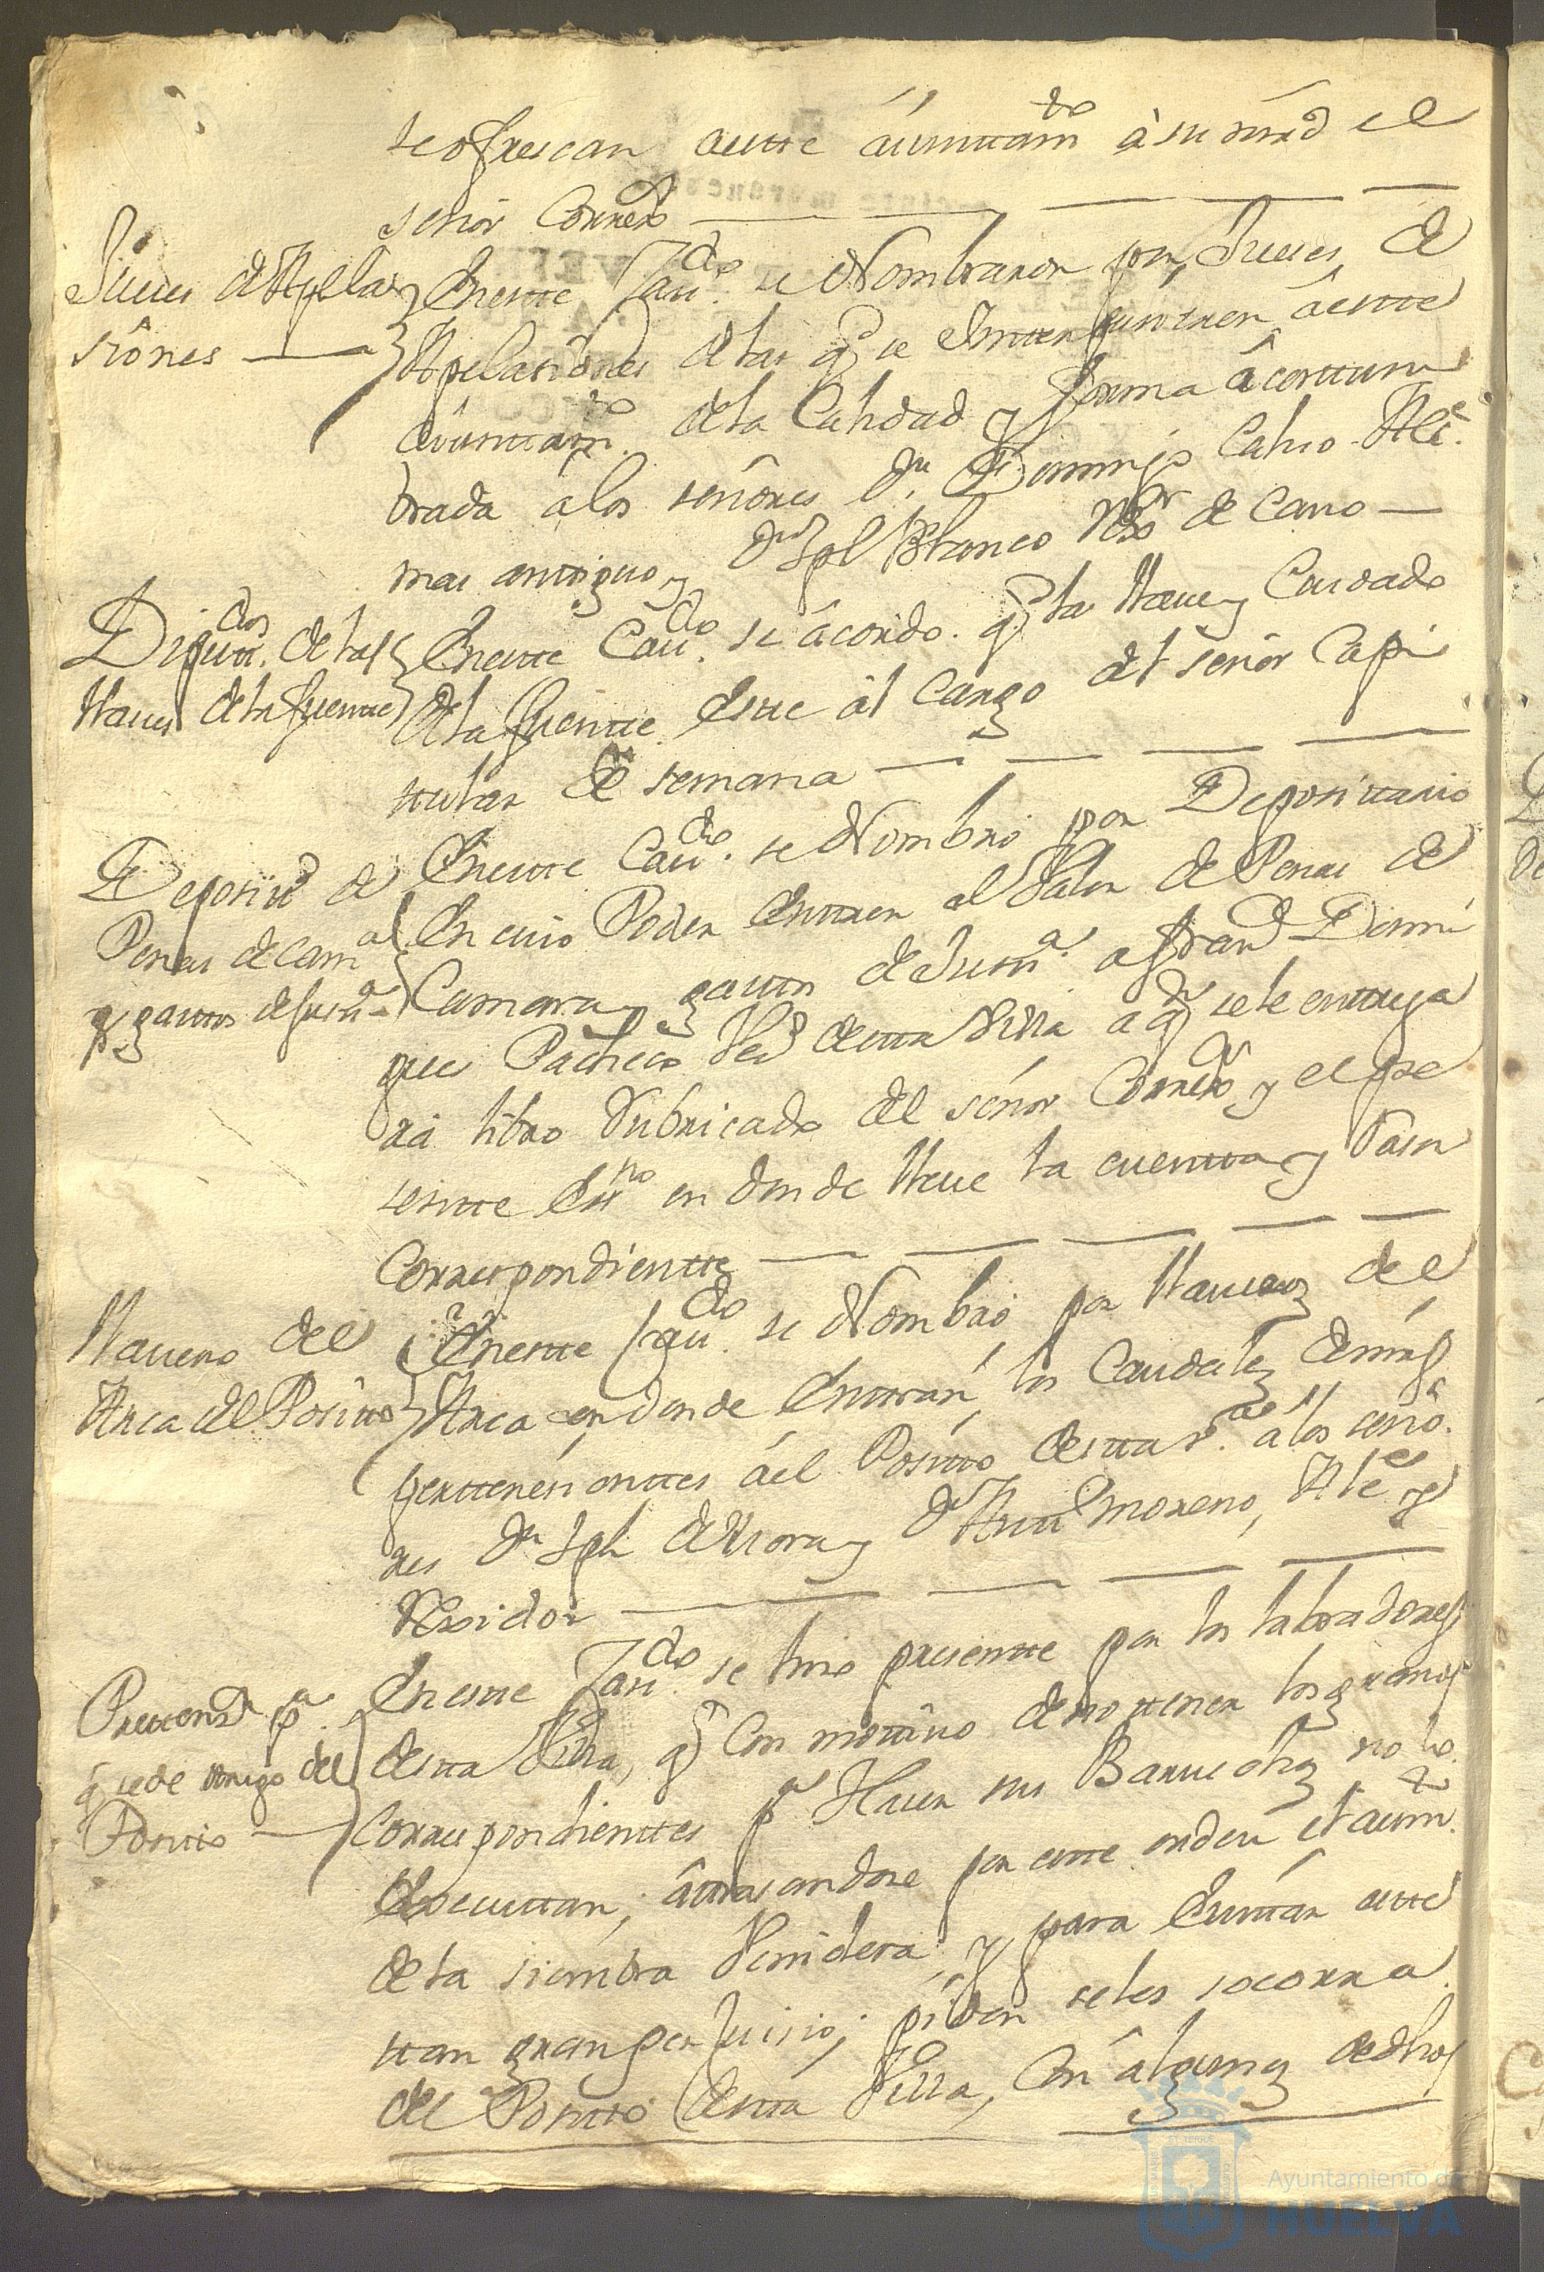 se ofrescan aeste áiunttamto à su mrd el
señor Correxor
Jueses de Apela
siônes
En este Cavdo se Nombraron por Jueses de
Apelasiônes de las qe se Intterpusieren âeste
áiunttamto de la Calidad y forma âcosttum
brada a los señôres Dn Domingo Calvo Alce
mas anttiguo y Dn Jph Blanco Rexor de Cano
Diputdos de las
llaves de la fuentte
En este Cavdo se âcordo qe la llave y Cuidado
de la fuentte este al Cargo del señor Capi
ttular de semana
Deposittº de
Penas de Camra
y gasttos de Justta
En este Cavdo se Nombró por Deposittario
En cuio Poder Entren el Valor de Penas de
Camara y gasttos de Justta a Franco Domin
gues Pacheco Veº de estta Villa a qn se le enttrega
rá libro Rubricado del señor Correxor y el pre
sentte Essno en donde lleve la cuentta y Rason
Correspondientte
llavero del
Arca del Positto
En este Cavdo se Nombró por llaveros del
Arca en donde Enttrarán los Caudales demás
perttenesienttes áel Positto de estta Va a los seño
res Dn Jph de Mora y Dn Antt Moreno, Alce y
Rexidor
Prettensn pa
q se de ttrigo del
Positto
En este Cavdo se hiso presentte por los labradores
de estta Villa, qe Con mottivo de no ttener los granos
Correspondienttes pa Haser sus Barvechos no lo
Executtan, âttrasandose por este orden el aumto
de la siembra Venidera; y para Evittar este
ttan gran perJuisio; piden se les socorra
del Positto de estta Villa, Con algunos de dhos
Ayuntamiento de
HUELVA